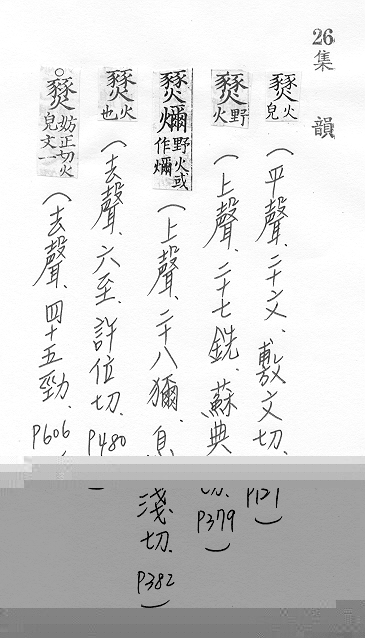 26集韻
燹火皃(平聲、二十文、敷文切、P121)
燹野火(上聲、二十七銑、蘇典切、P379)
燹 野火或作 (上聲、二十八獮、息淺切、P382)
燹火也(去聲、六至、許位切、P480)
○燹妨正切火皃文一(去聲、四十五勁、P606